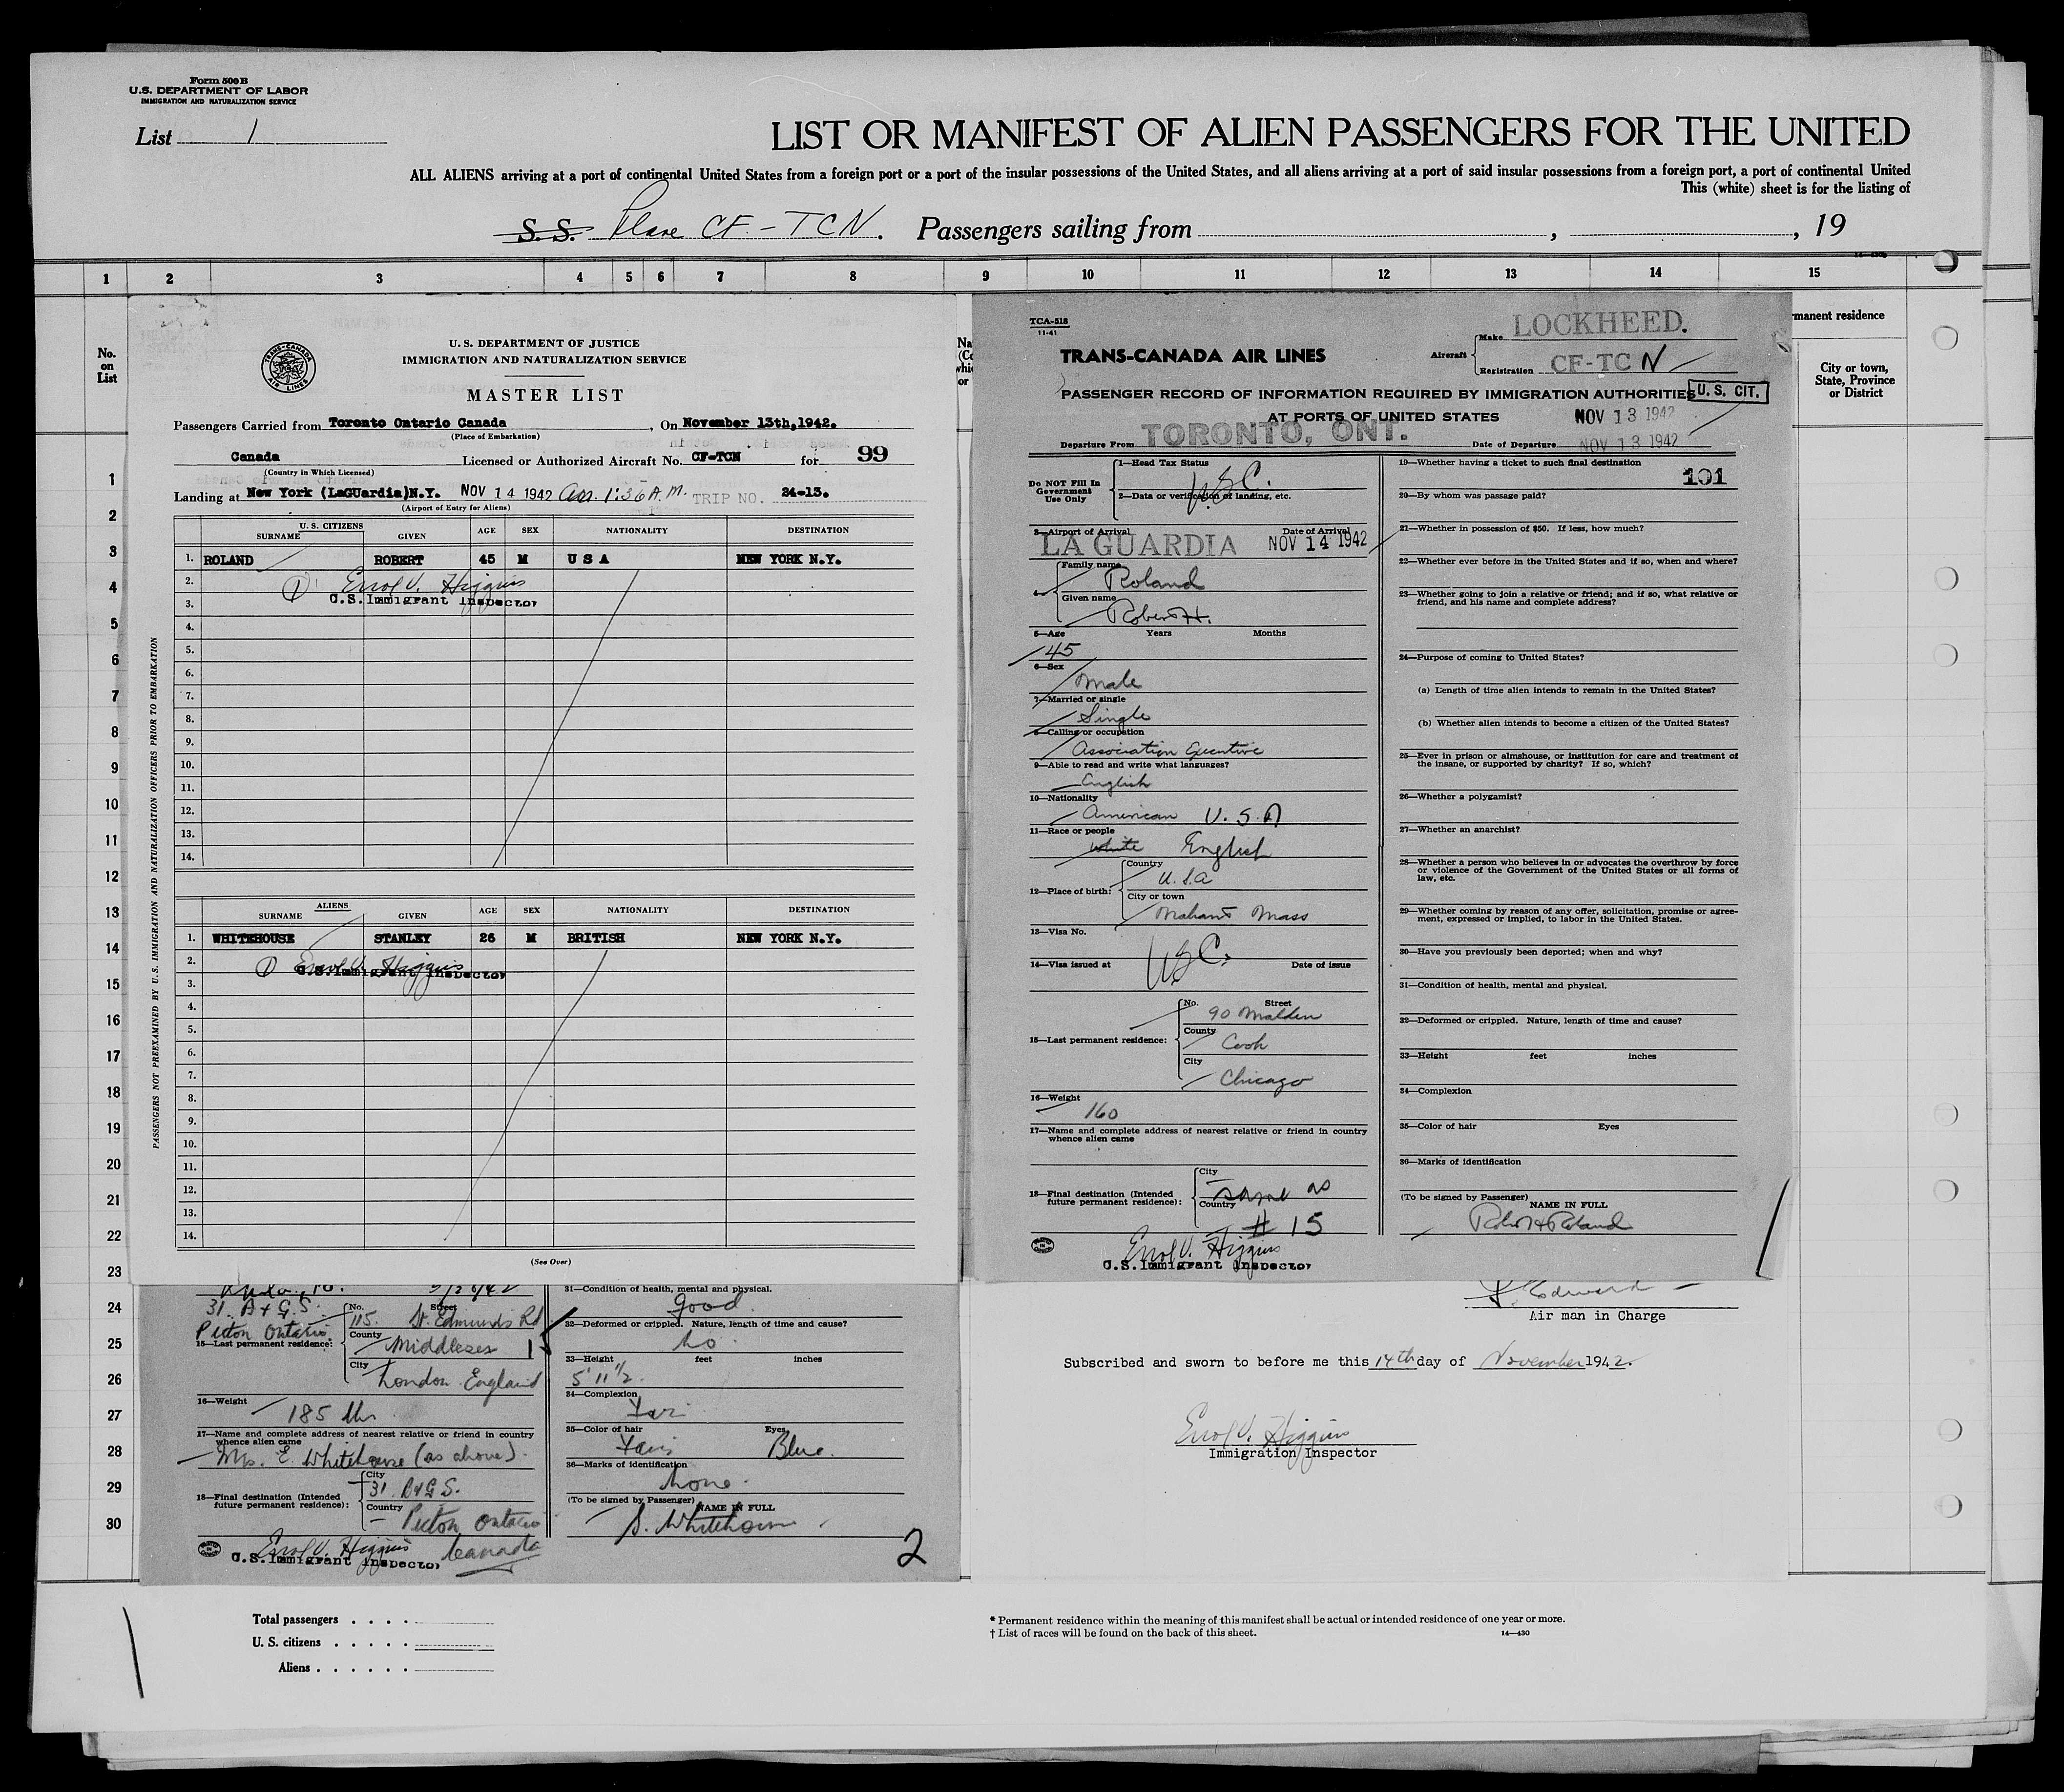 Form 500 B
U.S. DEPARTMENT OF LABOR
IMMIGRATION AND NATURALIZATION SERVICE
List 1
LIST OR MANIFEST OF ALIEN PASSENGERS FOR THE UNITED
ALL ALIENS arriving at a port of continental United States from a foreign port or a port of the insular possessions of the United States, and all aliens arriving at a port of said insular possessions from a foreign port, a port of continental United
This (white) sheet is for the listing of
S.S. Plane CF-TCN. Passengers sailing from , , 19
1 2 3 4 5 6 7 8 9 10 11 12 13 14 15
No. on List
manent residence
City or town, State, Province or District
1
2
3
4
5
6
7
8
9
10
11
12
13
14
15
16
17
18
19
20
21
22
23
24
25
26
27
28
29
30
TRANS-CANADA AIR LINES
U. S. DEPARTMENT OF JUSTICE
IMMIGRATION AND NATURALIZATION SERVICE
MASTER LIST
Passengers Carried from Toronto Ontario Canada, On November 13th, 1942.
(Place of Embarkation)
Canada Licensed or Authorized Aircraft No. CF-TCN for 99
(Country in Which Licensed)
Landing at New York (LaGUardia)N.Y. NOV 14 1942 Arr. 1:36 A.M. TRIP NO. 24-13.
(Airport of Entry for Aliens)
U. S. CITIZENS
SURNAME GIVEN AGE SEX NATIONALITY DESTINATION
1. ROLAND ROBERT 45 M U S A NEW YORK N.Y.
2. 1 Errol V. Higgins
3. U.S. Immigrant Inspector
4.
5.
6.
7.
8.
9.
10.
11.
12.
13.
14.
ALIENS
SURNAME GIVEN AGE SEX NATIONALITY DESTINATION
1. WHITEHOUSE STANLEY 26 M BRITISH NEW YORK N.Y.
2. 1 Errol V. Higgins
U.S. Immigrant Inspector
3.
4.
5.
6.
7.
8.
9.
10.
11.
12.
13.
14.
(See Over)
PASSENGERS NOT PREEXAMINED BY U. S. IMMIGRATION AND NATURALIZATION OFFICERS PRIOR TO EMBARKATION
TCA-518
11-41
TRANS-CANADA AIR LINES
Aircraft
Make LOCKHEED.
Registration CF-TC N
PASSENGER RECORD OF INFORMATION REQUIRED BY IMMIGRATION AUTHORITIES
U. S. CIT.
AT PORTS OF UNITED STATES NOV 13 1942
Departure From TORONTO, ONT. Date of Departure NOV 13 1942
Do NOT Fill In Government Use Only
1—Head Tax Status
USC.
2—Data or verification of landing, etc.
3—Airport of Arrival Date of Arrival
LA GUARDIA NOV 14 1942
Family name
Roland
Given name
Robert H.
5—Age Years Months
45
6—Sex
Male
7—Married or single
Single
8—Calling or occupation
Association Executive
9—Able to read and write what languages?
English
10—Nationality
American U.S.A
11—Race or people
white English
12—Place of birth:
Country
U.S.A
City or town
Nahant Mass
13—Visa No.
USC.
14—Visa issued at Date of issue
15—Last permanent residence:
No. Street
90 Malden
County
Cook
City
Chicago
16—Weight
160
17—Name and complete address of nearest relative or friend in country whence alien came
18—Final destination (Intended future permanent residence):
City
same as
Country
# 15
Errol V. Higgins
U.S. Immigrant Inspector
19—Whether having a ticket to such final destination
101
20—By whom was passage paid?
21—Whether in possession of $50. If less, how much?
22—Whether ever before in the United States and if so, when and where?
23—Whether going to join a relative or friend; and if so, what relative or friend, and his name and complete address?
24—Purpose of coming to United States?
(a) Length of time alien intends to remain in the United States?
(b) Whether alien intends to become a citizen of the United States?
25—Ever in prison or almshouse, or institution for care and treatment of the insane, or supported by charity? If so, which?
26—Whether a polygamist?
27—Whether an anarchist?
28—Whether a person who believes in or advocates the overthrow by force or violence of the Government of the United States or all forms of law, etc.
29—Whether coming by reason of any offer, solicitation, promise or agreement, expressed or implied, to labor in the United States.
30—Have you previously been deported; when and why?
31—Condition of health, mental and physical.
32—Deformed or crippled. Nature, length of time and cause?
33—Height feet inches
34—Complexion
35—Color of hair Eyes
36—Marks of identification
(To be signed by Passenger)
NAME IN FULL
Robert H Roland
31. B & G.S.
Picton Ontario.
15—Last permanent residence:
No. Street
115. St. Edmunds Rd
County
Middlesex
City
London England
16—Weight
185 lbs
17—Name and complete address of nearest relative or friend in country whence alien came
Mrs. E. Whitehouse (as above).
18—Final destination (Intended future permanent residence):
City
31. B & G S.
Country
Picton Ontario
Canada
Errol V. Higgins
U.S. Immigrant Inspector
31—Condition of health, mental and physical.
Good
32—Deformed or crippled. Nature, length of time and cause?
No
33—Height feet inches
5' 11 1/2
34—Complexion
Fair
35—Color of hair Eyes
Fair Blue.
36—Marks of identification
None.
(To be signed by Passenger)
NAME IN FULL
S. Whitehouse
2
Edward
Air man in Charge
Subscribed and sworn to before me this 14th day of November 1942.
Errol V. Higgins
Immigration Inspector
Total passengers . . . .
U. S. citizens . . . . .
Aliens . . . . . .
* Permanent residence within the meaning of this manifest shall be actual or intended residence of one year or more.
† List of races will be found on the back of this sheet.
14—430